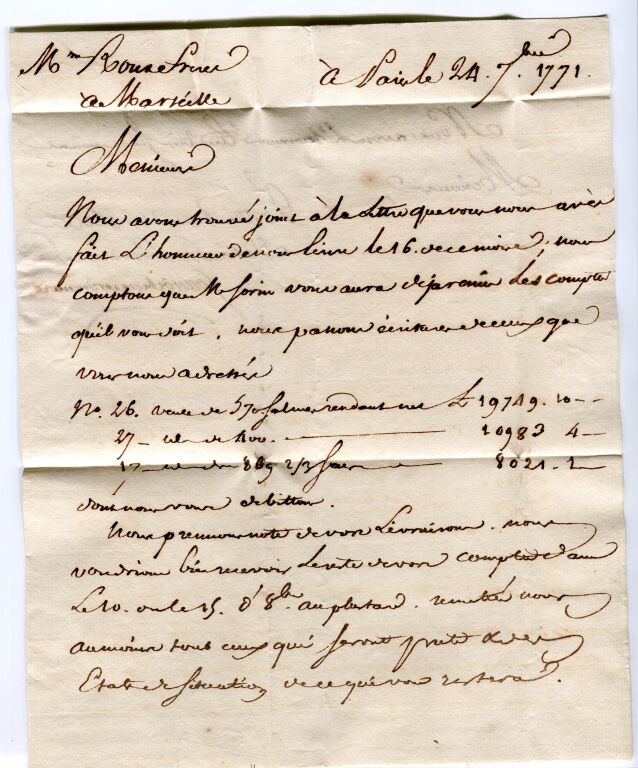 Mrs Roux freres à Paris le 24. 7bre 1771.
à Marseille
Messieurs
Nous avons trouvé joint à la lettre que vous nous avés
fait L'honneur de nous écrire le 16. de ce mois, nous
comptons que M. vous aura deja remis Les compte
qu'il vous doit. nous passons écritures de ceux que
vous nous adressés
No. 26. vente de 570 salmes rendant net £ 19749. 10 --
27 - de 400. 10983 4 -
17 - 869 2/3 8021. 1
dont nous vous debittons.
Nous prennons note de vos Livraisons. nous
voudrions bien recevoir Le reste de vos comptes d'
Le 10. ou le 15. d' 8bre au plustard. remettés nous
au moins tous ceux qui seront prets &
Etat de situation de ce qui vous restera.